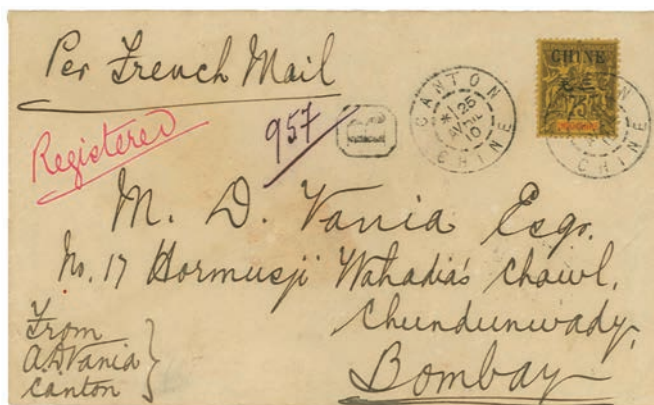 Per French Mail
Registered
957
R
CANTON
* 25
AVRIL
10
CHINE
CHINE
75
CHINE
M. D. Vania Esqr.
No. 17 Hormusji Wahadia's Chawl,
Chundunwady,
Bombay
From
A. D. Vania
Canton